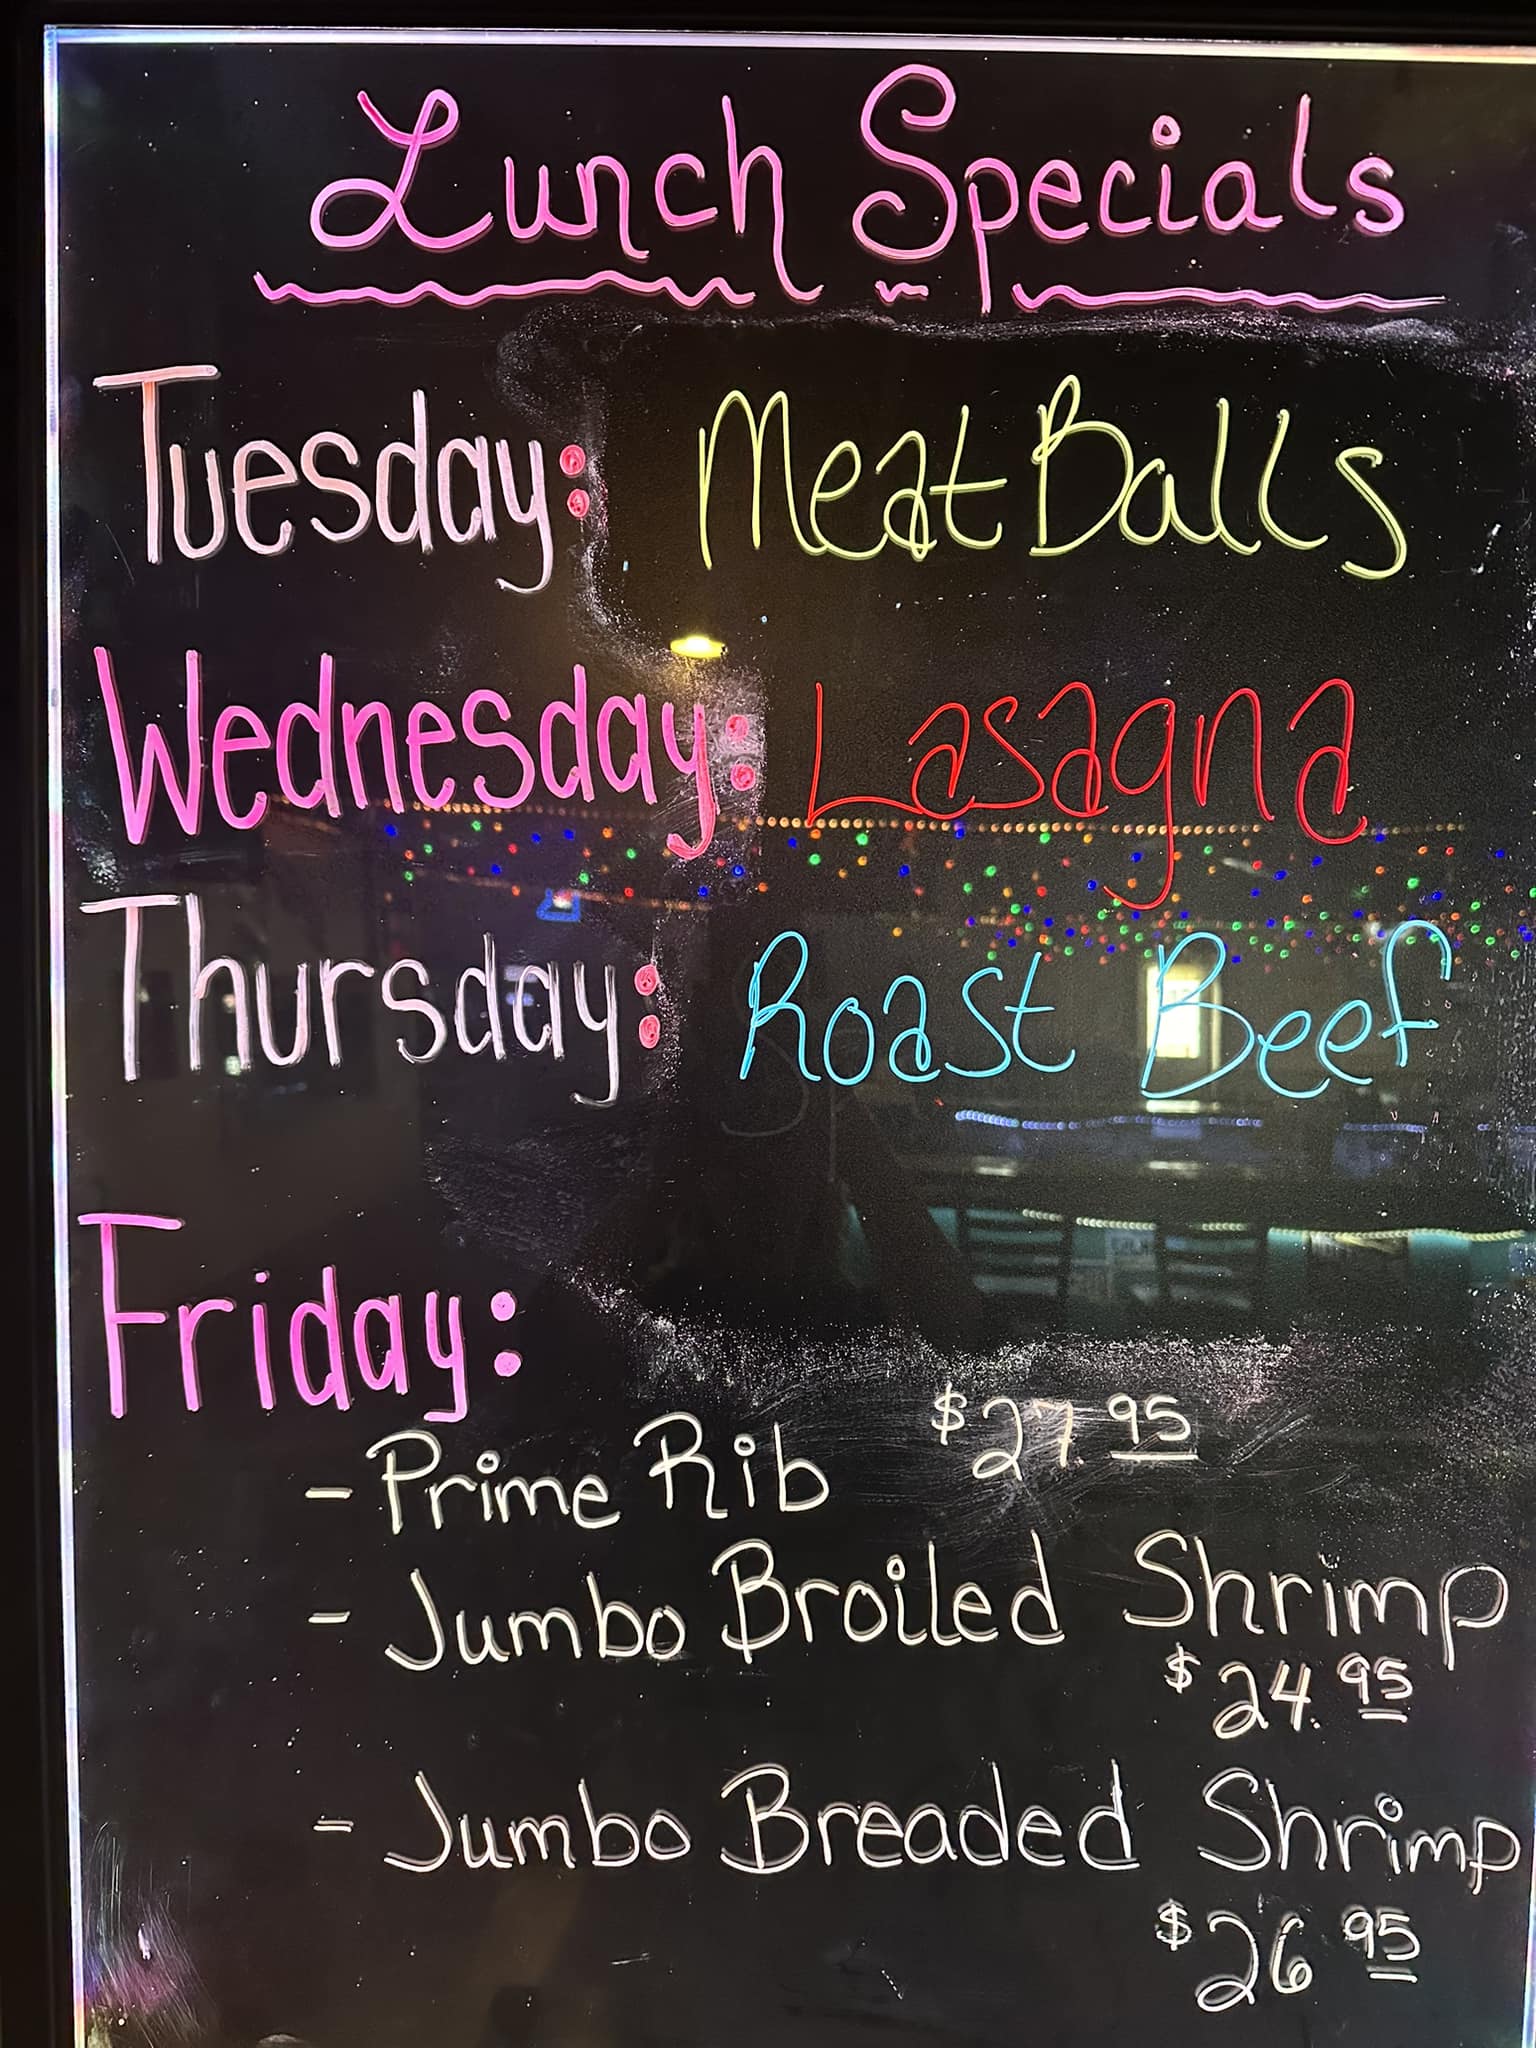 Lunch Specials
Tuesday: MeatBalls
Wednesday: Lasagna
Thursday: Roast Beef
Friday:
- Prime Rib $27.95
- Jumbo Broiled Shrimp
$24.95
- Jumbo Breaded Shrimp
$26 95